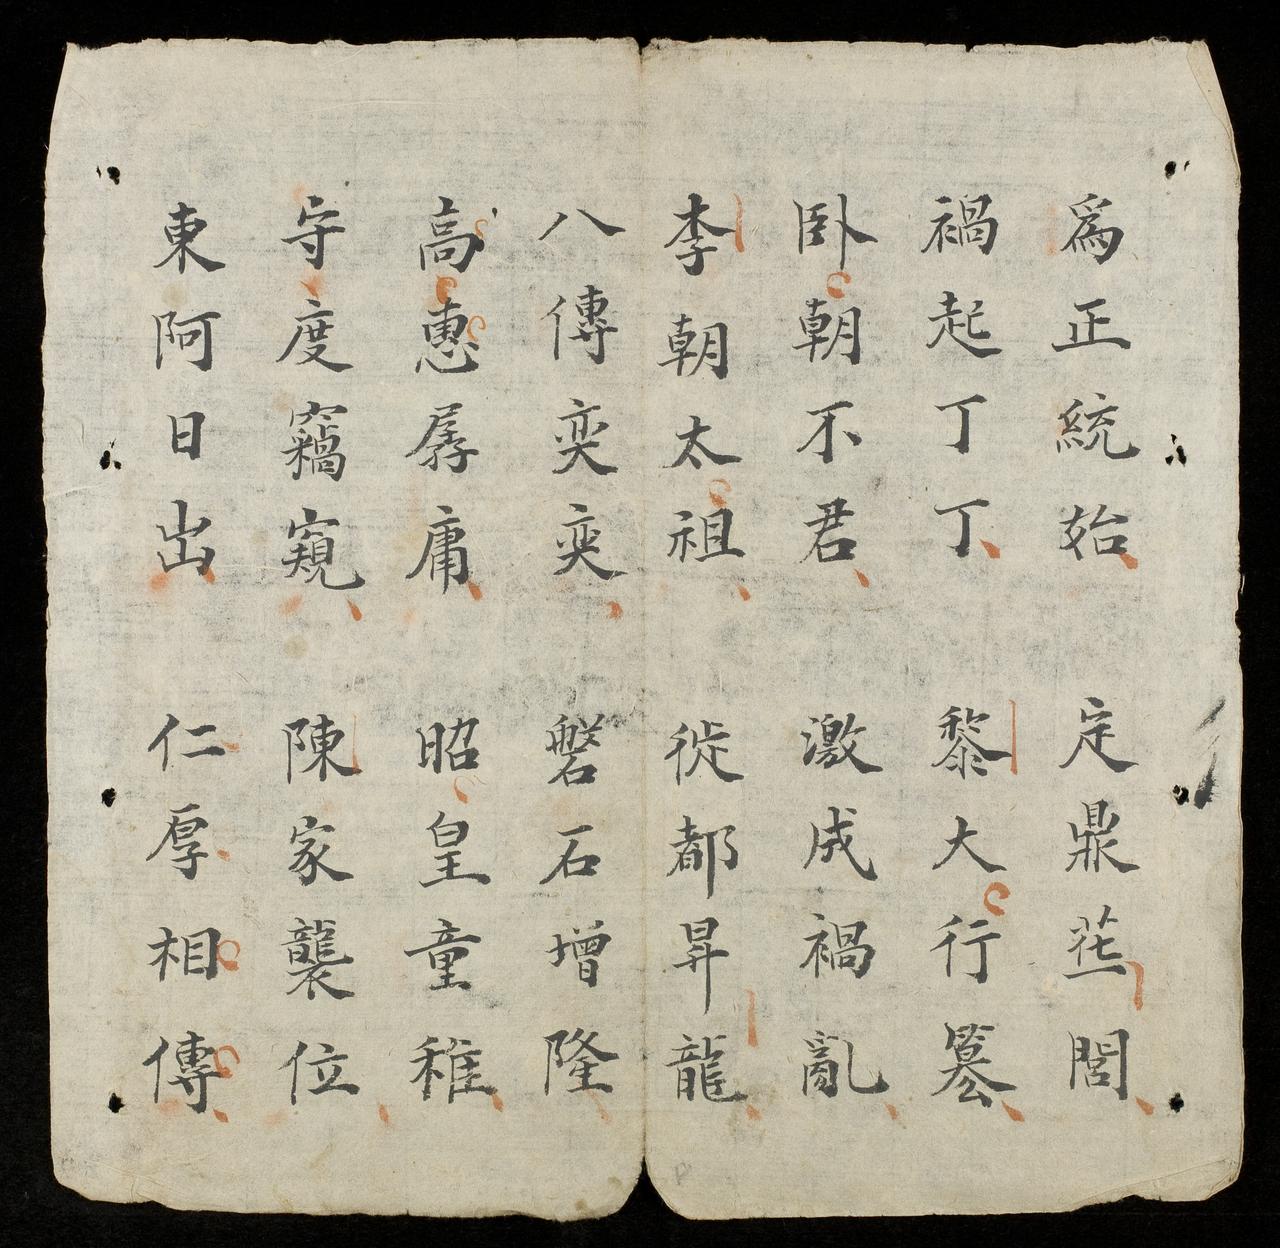 爲正統始 定鼎茊閭
禍起丁丁 黎大行篡
卧朝不君 激成禍亂
李朝太祖 徙都昇龍
八傳奕奕 磐石增隆
高惠孱庸 昭皇童稚
守度竊窺 陳家襲位
東阿日出 仁厚相傳